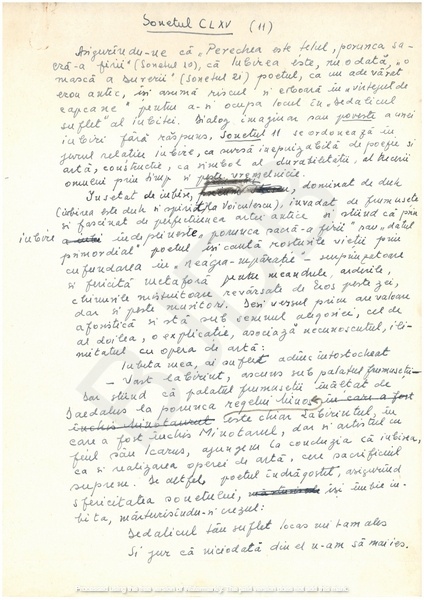 Sonetul CLXV (11)
Asigurîndu-ne că „Perechea este țelul, porunca sa-
cră-a firii" (Sonetul 10), că iubirea este, nu o dată, „o
mască a durerii" (Sonetul 21) poetul, ca un adevărat
erou antic, își asumă riscul și coboară în „vîrtejul de
capcane" pentru a-și ocupa locul în „Dedalicul
suflet" al iubitei. Dialog imaginar sau poveste a unei
iubiri fără răspuns, Sonetul 11 se ordonează în
jurul relației iubire, ca sursă inepuizabilă de poezie și
artă, construcție, ca simbol al durabilității, al trecerii
omului prin timp și peste vremelnicie.
Însetat de iubire, dominat de duh
(iubirea este duh și spirit la Voiculescu), invadat de frumusețe
și fascinat de perfecțiunea artei antice și știind că prin
iubire îndeplinește „porunca sacră-a firii" sau „datul
primordial" poetul își caută rosturile vieții prin
cufundarea în „neagra-mpărăție" – surprinzătoare
și fericită metaforă pentru meandrele, ardorile,
chinurile mistuitoare revărsate de Eros peste zei,
dar și peste muritori. Deși versul prim are valoare
aforistică și stă sub semnul alegoriei, cel de
al doilea, o explicație, asociază necunoscutul, ili-
mitatul cu opera de artă:
Iubita mea, ai suflet adînc întortocheat
– Vast labirint, ascuns sub palatul frumuseții –
Dar știind că palatul frumuseții înălțat de
Daedalus la porunca regelui Minos în care a fost
închis Minotaurul este chiar Labirintul, în
care a fost închis Minotaurul, dar și artistul cu
fiul său Icarus, ajungem la concluzia că iubirea,
ca și realizarea operei de artă, cere sacrificiul
suprem. De altfel, poetul îndrăgostit, asigurînd
sfericitatea sonetului, își îmbie iu-
bita, mărturisindu-și crezul:
Dedalicul tău suflet locaș mi l-am ales
Și jur că niciodată din el n-am să mai ies.